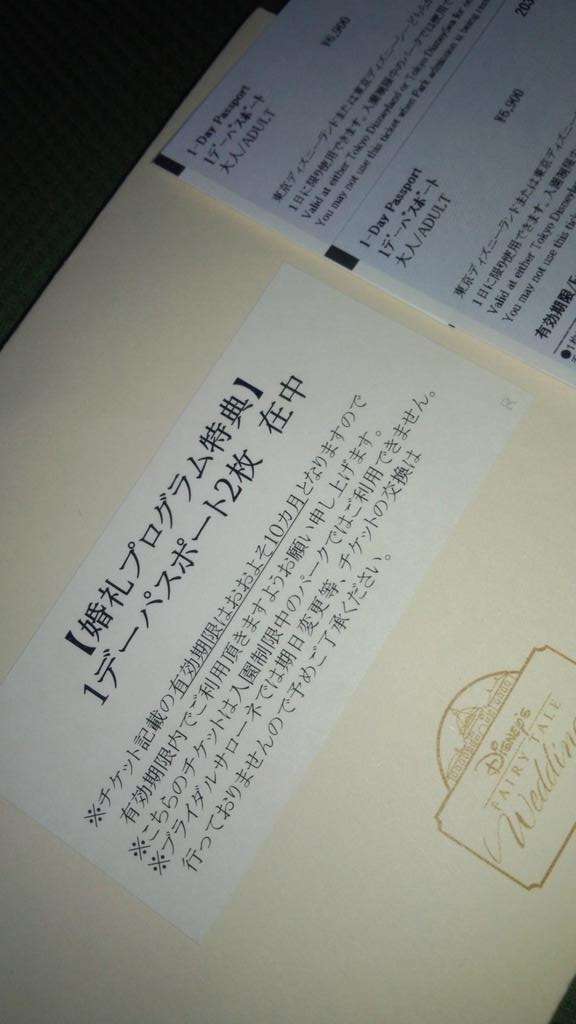 ¥6,900
1-Day Passport
1デーパスポート
大人/ADULT
東京ディズニーランドまたは東京ディズニーシー
1日に限り使用できます。入園制限中のパークでは使用で
Valid at either Tokyo Disneyland or Tokyo DisneySea for
You may not use this ticket when Park admission is being
203
¥6,900
1-Day Passport
1デーパスポート
大人/ADULT
東京ディズニーランドまたは東京ディズニー
1日に限り使用できます。入園制限
Valid at either Tokyo Disneyland
You may not use this
有効期限/E
【婚礼プログラム特典】
1デーパスポート2枚 在中
※チケット記載の有効期限はおおよそ10カ月となりますので
有効期限内でご利用頂きますようお願い申し上げます。
※こちらのチケットは入園制限中のパークではご利用できません。
※ブライダルサローネでは期日変更等、チケットの交換は
行っておりませんので予めご了承ください。
Disney's
FAIRY TALE
Wedding